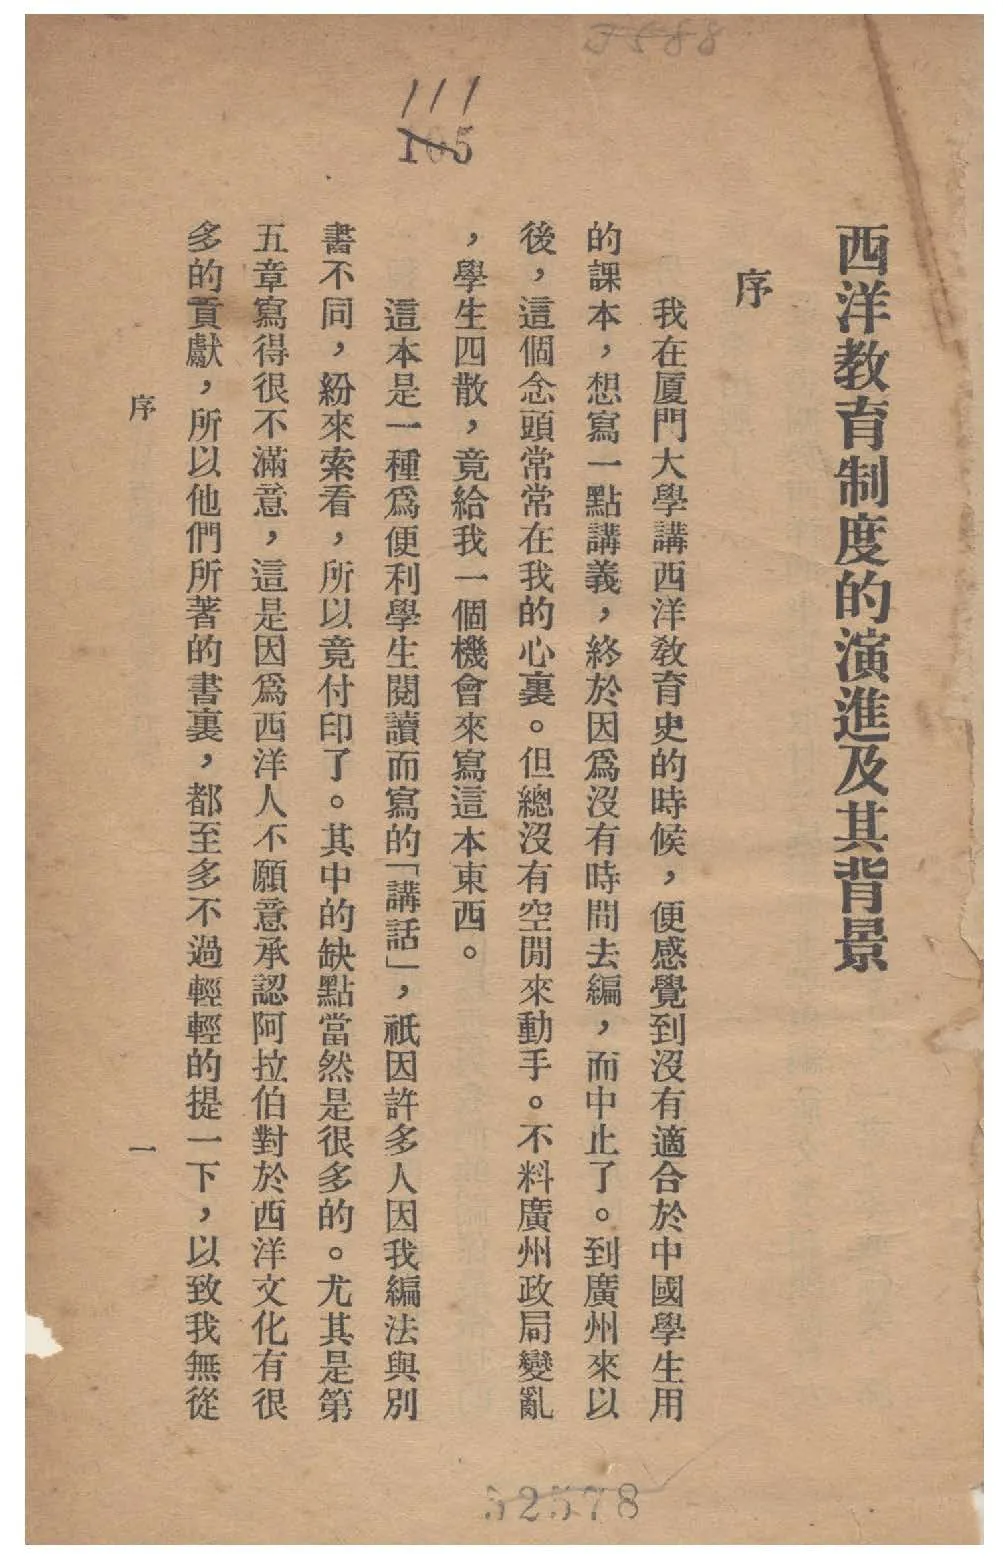 111
105
西洋教育制度的演進及其背景
序
我在厦門大學講西洋敎育史的時候，便感覺到沒有適合於中國學生用
的課本，想寫一點講義，終於因爲沒有時間去編，而中止了。到廣州來以
後，這個念頭常常在我的心裏。但總沒有空閒來動手。不料廣州政局變亂
，學生四散，竟給我一個機會來寫這本東西。
這本是一種爲便利學生閱讀而寫的「講話」，祇因許多人因我編法與別
書不同，紛來索看，所以竟付印了。其中的缺點當然是很多的。尤其是第
五章寫得很不滿意，這是因爲西洋人不願意承認阿拉伯對於西洋文化有很
多的貢獻，所以他們所著的書裏，都至多不過輕輕的提一下，以致我無從
序
一
52578